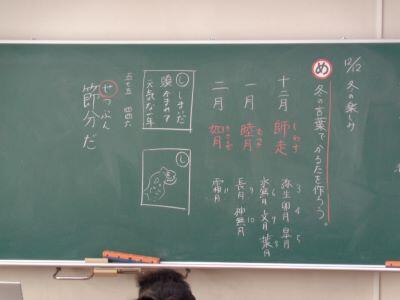 12/12 冬の楽しみ
め 冬の言葉でかるたを作ろう。
十二月 師走 しわす
一月 睦月 むつき
二月 如月 きさらぎ
弥生 3 卯月 4 皐月 5
水無月 6 文月 7 葉月 8
長月 9 神無月 10
霜月 11
し
元気な一年
五七五
せつぶん
節分だ
し